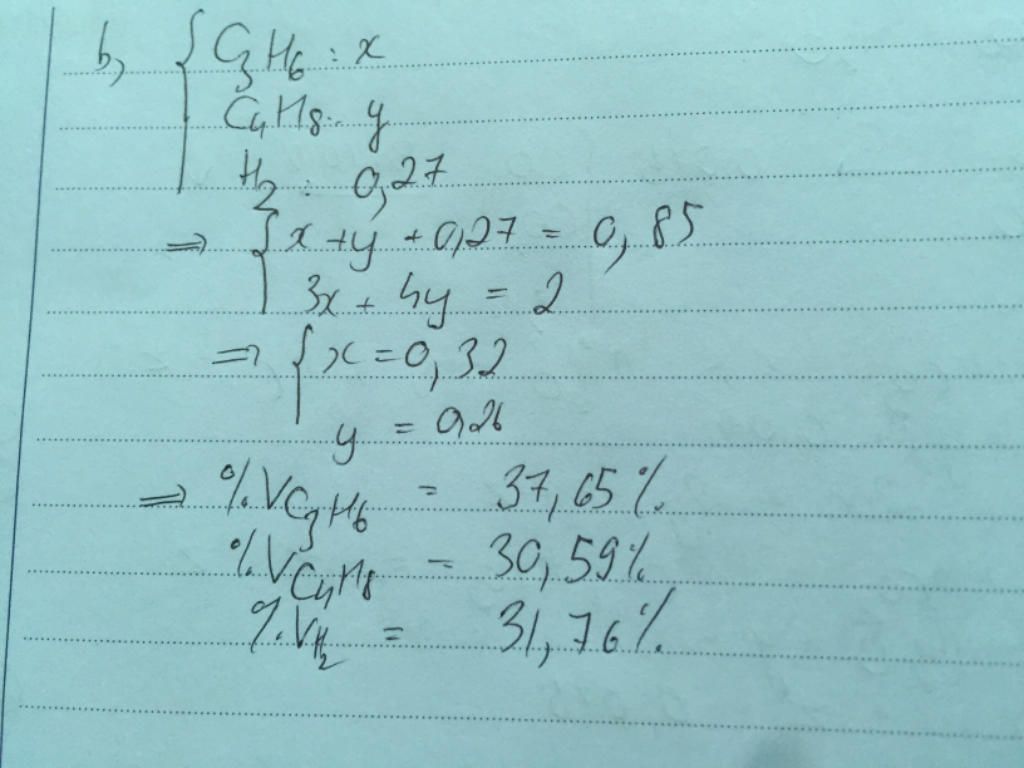 b, { C₃H₆ : x
C₄H₈ : y
H₂ : 0,27
⇒ { x + y + 0,27 = 0,85
3x + 4y = 2
⇒ { x = 0,32
y = 0,26
⇒ %V C₃H₆ = 37,65%
%V C₄H₈ = 30,59%
%V H₂ = 31,76%